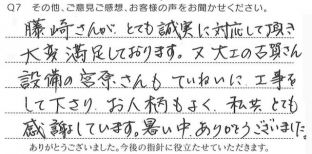 Q7 その他、ご意見ご感想、お客様の声をお聞かせください。
藤崎さんが、とても誠実に対応して頂き
大変満足しております。又大工の古賀さん
設備の宮原さんもていねいに工事を
して下さり、お人柄もよく、私共とても
感謝しています。暑い中ありがとうございました。
ありがとうございました。今後の指針に役立たせていただきます。